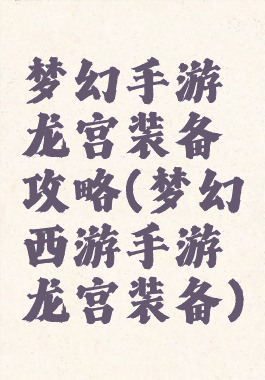 梦幻手游
龙宫装备
攻略(梦幻
西游手游
龙宫装备)